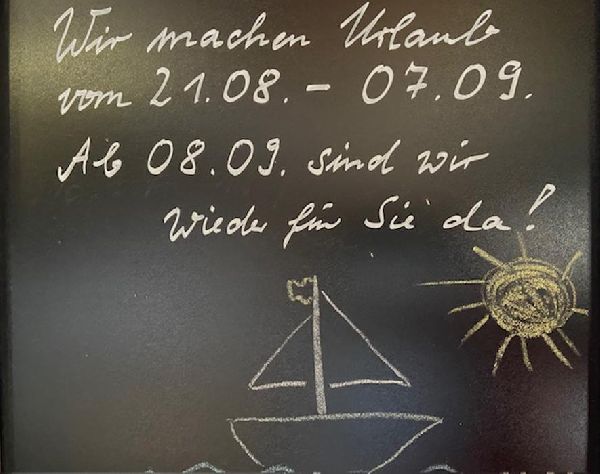 Wir machen Urlaub
vom 21.08. - 07.09.
Ab 08.09. sind wir
wieder für Sie da!